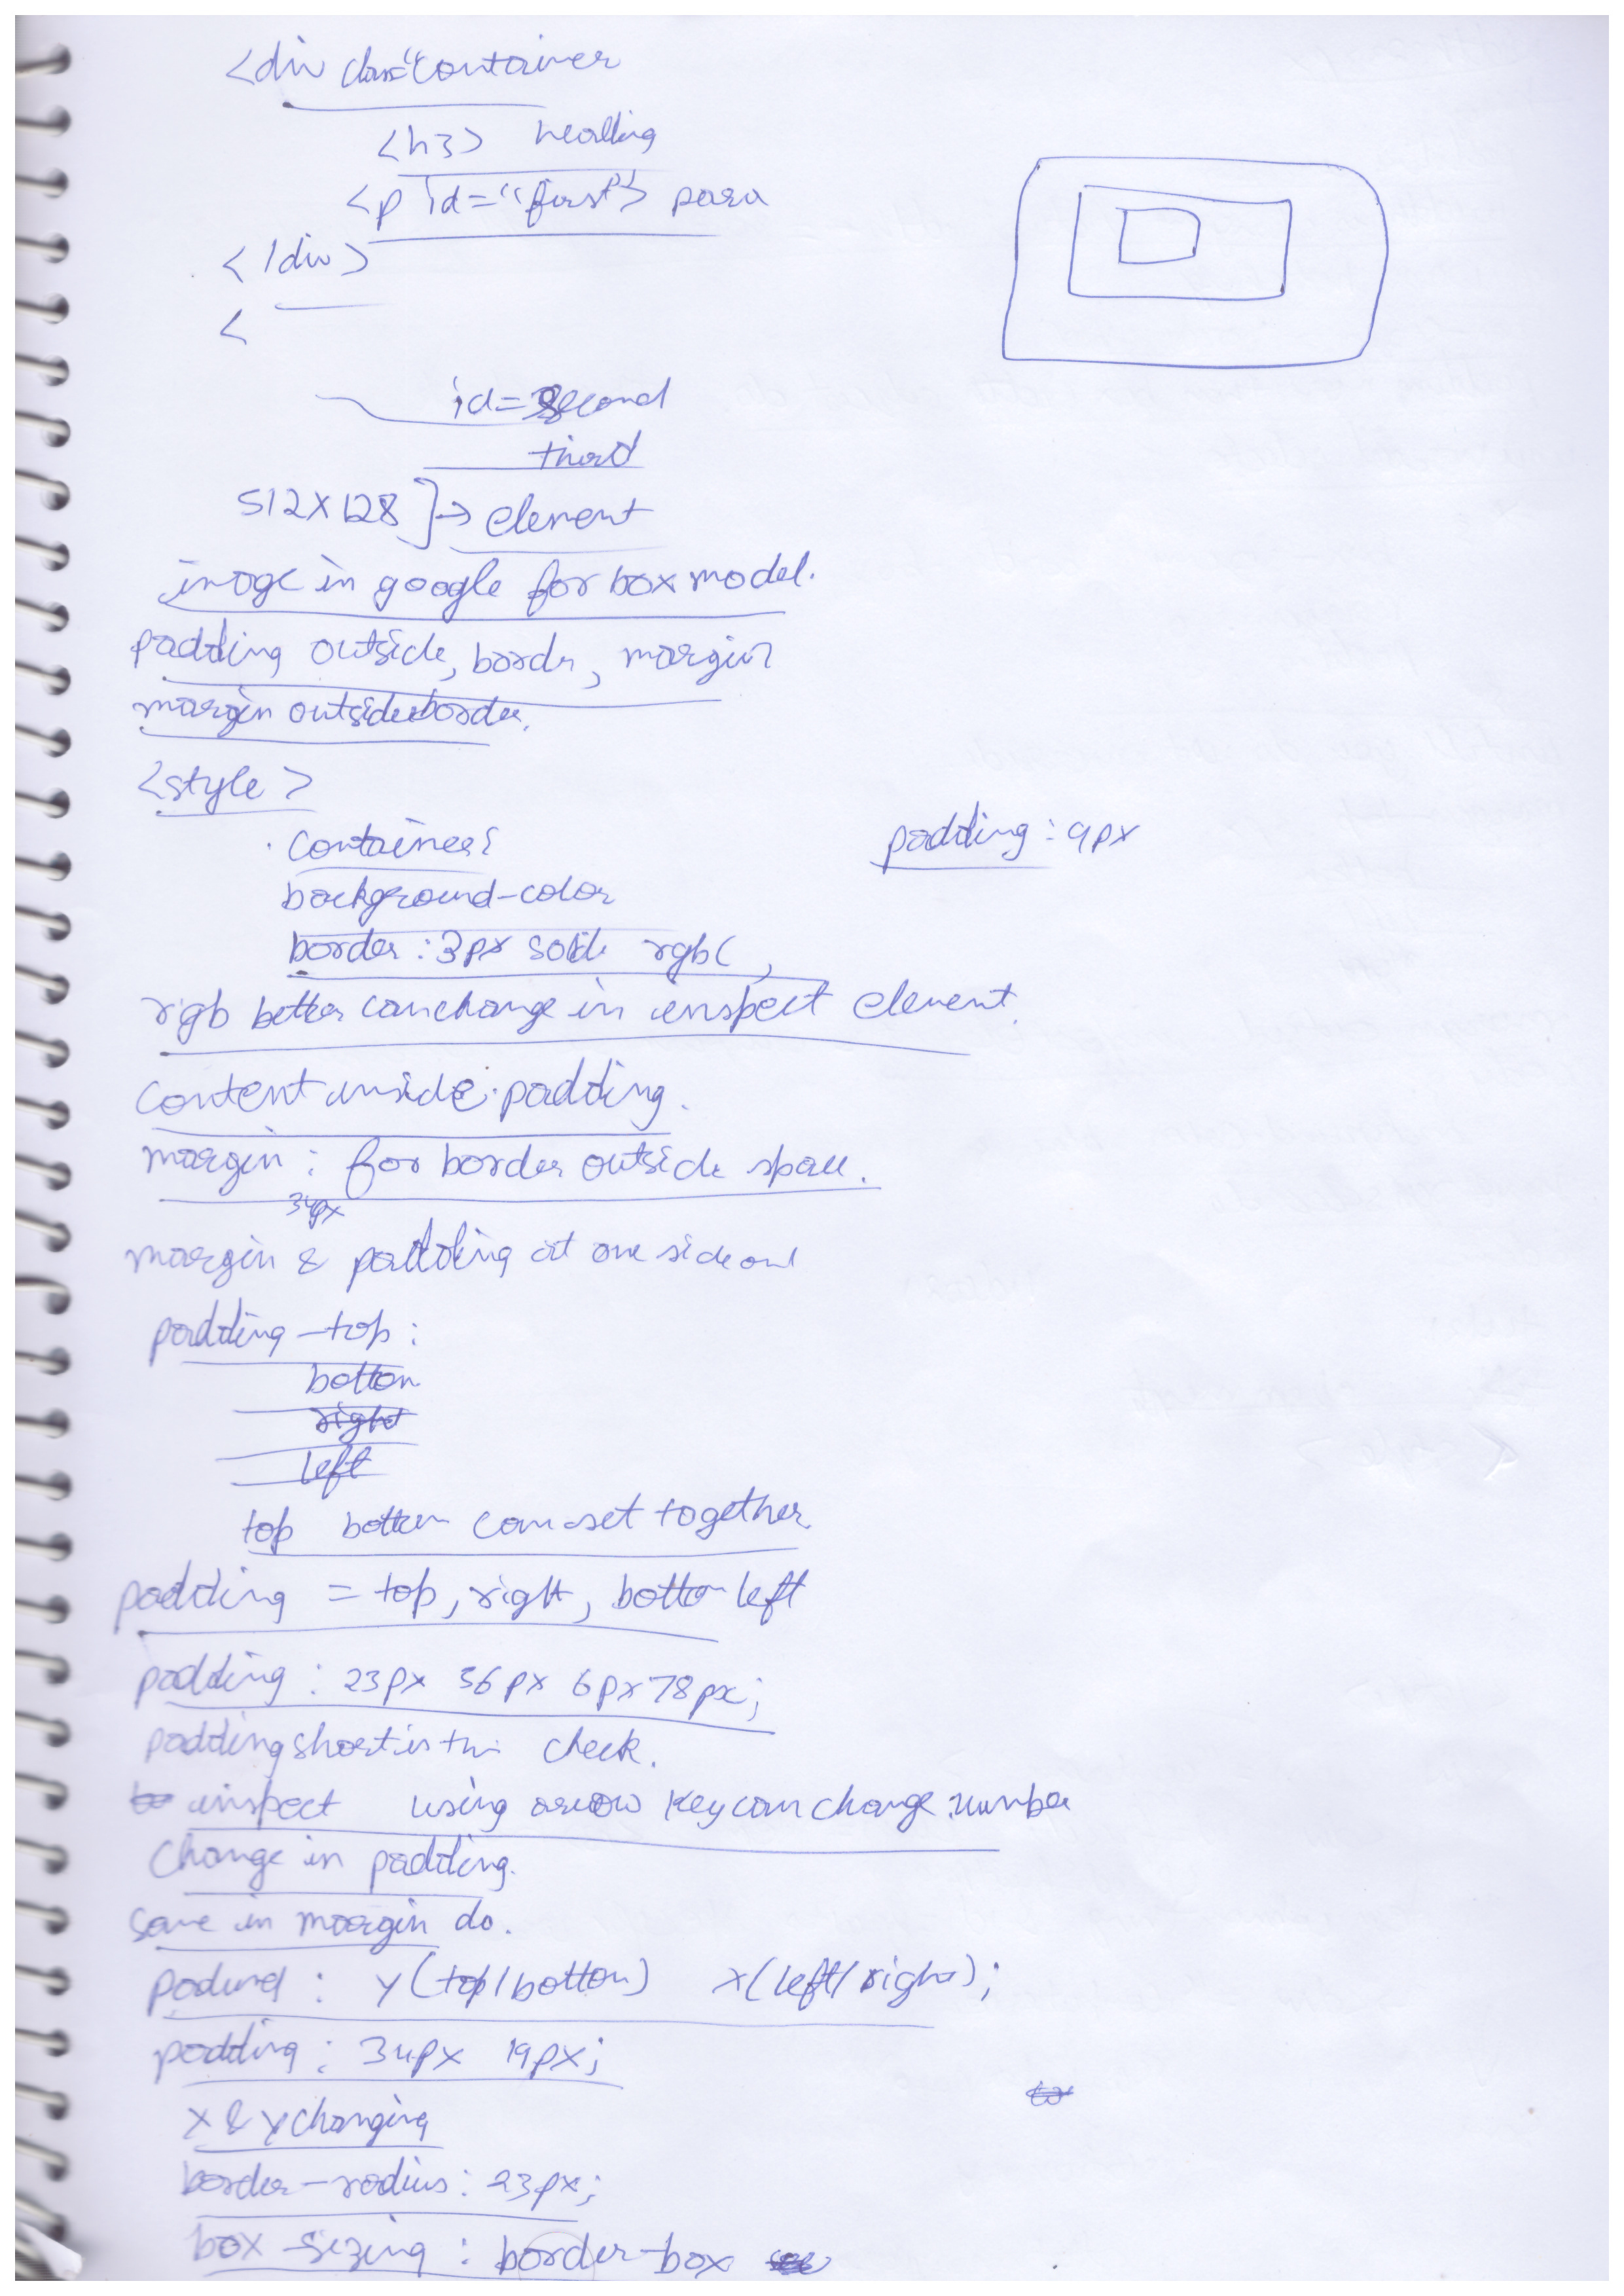 <div class="container
<h3> heading
<p id="first"> para
</div>
<
id=second
third
512X128 ]→ element
imoge in google for box model.
padding outside, border, margin
margin outside border.
<style>
. container {
padding : 9px
background-color
border : 3px solid rgb( ,
rgb better can change in inspect element.
content inside padding.
margin : for border outside space.
34px
margin & padding at one side
padding-top :
bottom
right
left
top bottom can set together
padding = top, right, bottom left
padding : 23px 36px 6px 78px;
padding short is this check.
inspect using arrow key can change number
change in padding.
same in margin do.
: y (top/bottom) x (left/right);
padding : 34px 19px;
x & y changing
border-radius : 23px;
box-sizing : border-box